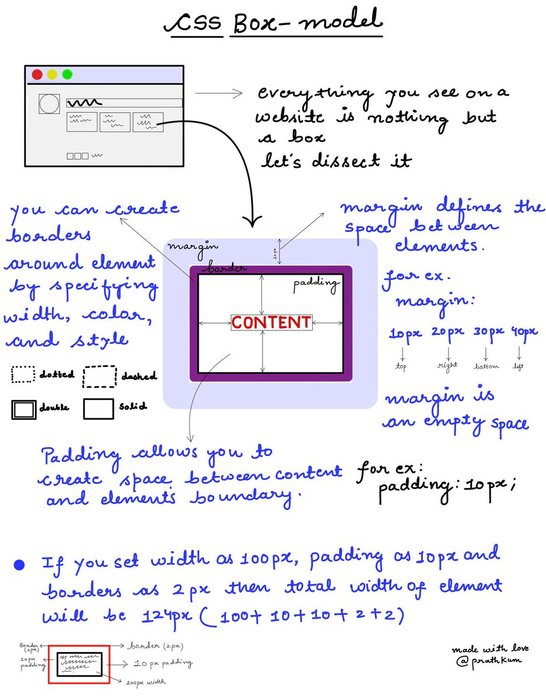 CSS Box-model
everything you see on a
website is nothing but
a box
let's dissect it
you can create
borders
around element
by specifying
width, color,
and style
dotted
dashed
double
solid
margin
border
padding
CONTENT
margin defines the
space between
elements.
for ex.
margin:
10px 20px 30px 40px
top right bottom left
margin is
an empty space
Padding allows you to
create space between content
and elements boundary.
for ex:
padding: 10px;
If you set width as 100px, padding as 10px and
borders as 2px then total width of element
will be 124px (100+10+10+2+2)
Border (2px)
10px
padding
border (2px)
10px padding
100px width
made with love
@prathkum